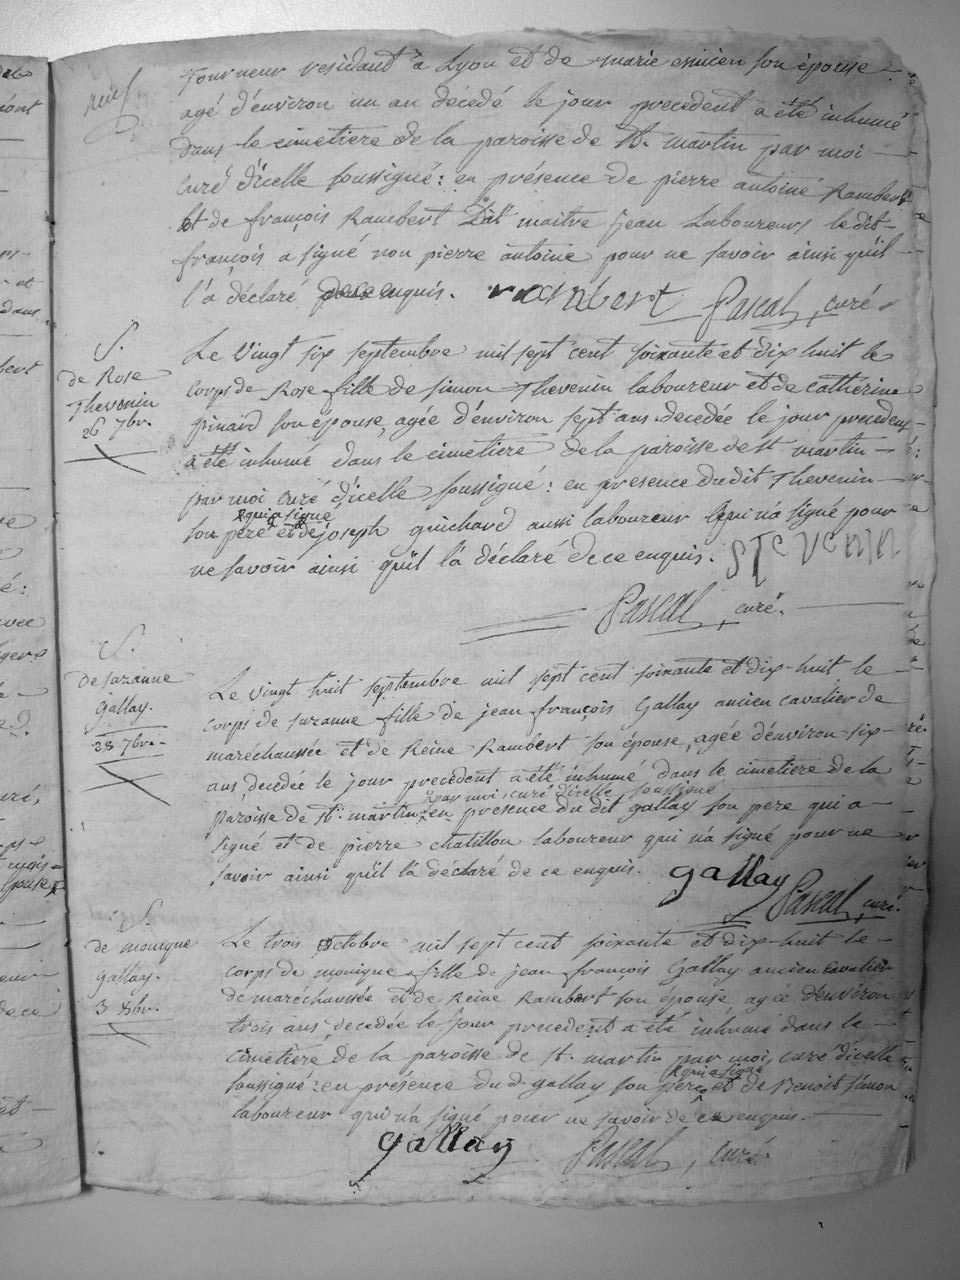 neuf
Tourneur residant à Lyon et de marie son épouse
agé d'environ un an décedé le jour precedent a été inhumé
dans le cimetiere de la paroisse de St. martin par moi
curé d'icelle soussigné: en présence de pierre antoine Rambert
et de françois Rambert maitre jean Laboureurs le dit
françois a signé non pierre antoine pour ne savoir ainsi qu'il
l'a déclaré de ce enquis. rambert Pascal, curé
S.
de Rose
Thevenin
26 7br.
Le vingt six septembre mil sept cent soixante et dix huit le
corps de Rose fille de simon Thevenin laboureur et de catherine
pinard son épouse, agée d'environ sept ans decedée le jour precedent
a été inhumé dans le cimetiere de la paroisse de st martin
par moi curé d'icelle soussigné: en presence du dit Thevenin
qui a signé
son pere et de joseph guichard aussi laboureur qui n'a signé pour
ne savoir ainsi qu'il l'a déclaré de ce enquis. STevenin
Pascal, curé.
S.
de suzanne
Gallay.
28 7br.
Le vingt huit septembre mil sept cent soixante et dix-huit le
corps de suzanne fille de jean françois Gallay ancien cavalier de
maréchaussée et de Reine Rambert son épouse, agée d'environ six
ans, decedée le jour precedent a été inhumé dans le cimetiere de la
par moi curé d'icelle soussigné
paroisse de st. martin en presence du dit gallay son pere qui a
signé et de pierre chatillon laboureur qui n'a signé pour ne
savoir ainsi qu'il l'a déclaré de ce enquis. gallay Pascal, curé.
S.
de monique
gallay.
3 8br.
Le trois octobre mil sept cent soixante et dix-huit le
corps de monique fille de jean françois Gallay ancien cavalier
de maréchaussée et de Reine Rambert son épouse, agée d'environ
trois ans decedée le jour precedent a été inhumé dans le
cimetiere de la paroisse de st. martin par moi, curé d'icelle
qui a signé
soussigné: en présence du d. gallay son pere et de Benoit simon
laboureur qui n'a signé pour ne savoir de ce enquis.
gallay Pascal, curé